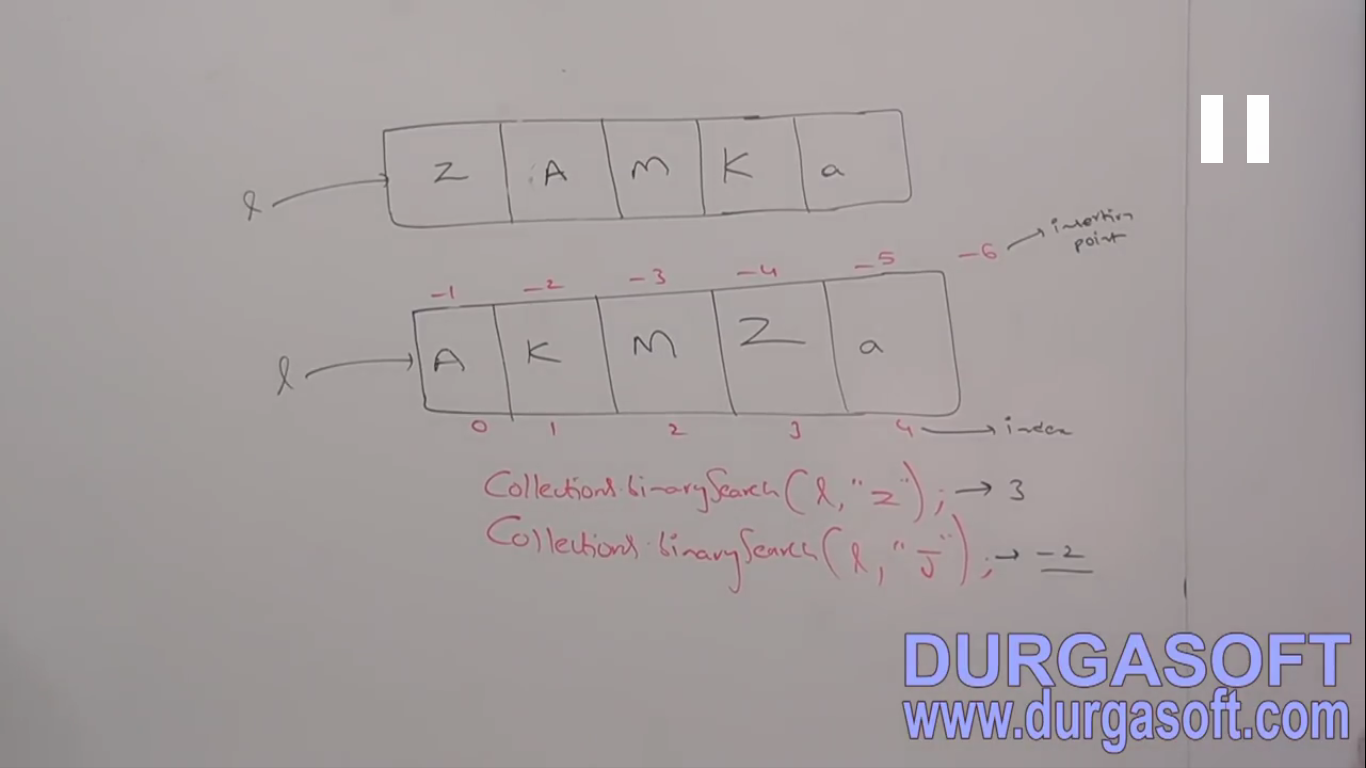 l → Z A M K a
-1 -2 -3 -4 -5 -6 → insertion
point
l → A K M Z a
0 1 2 3 4 → index
Collections.binarySearch(l, "Z"); → 3
Collections.binarySearch(l, "J"); → -2
DURGASOFT
www.durgasoft.com